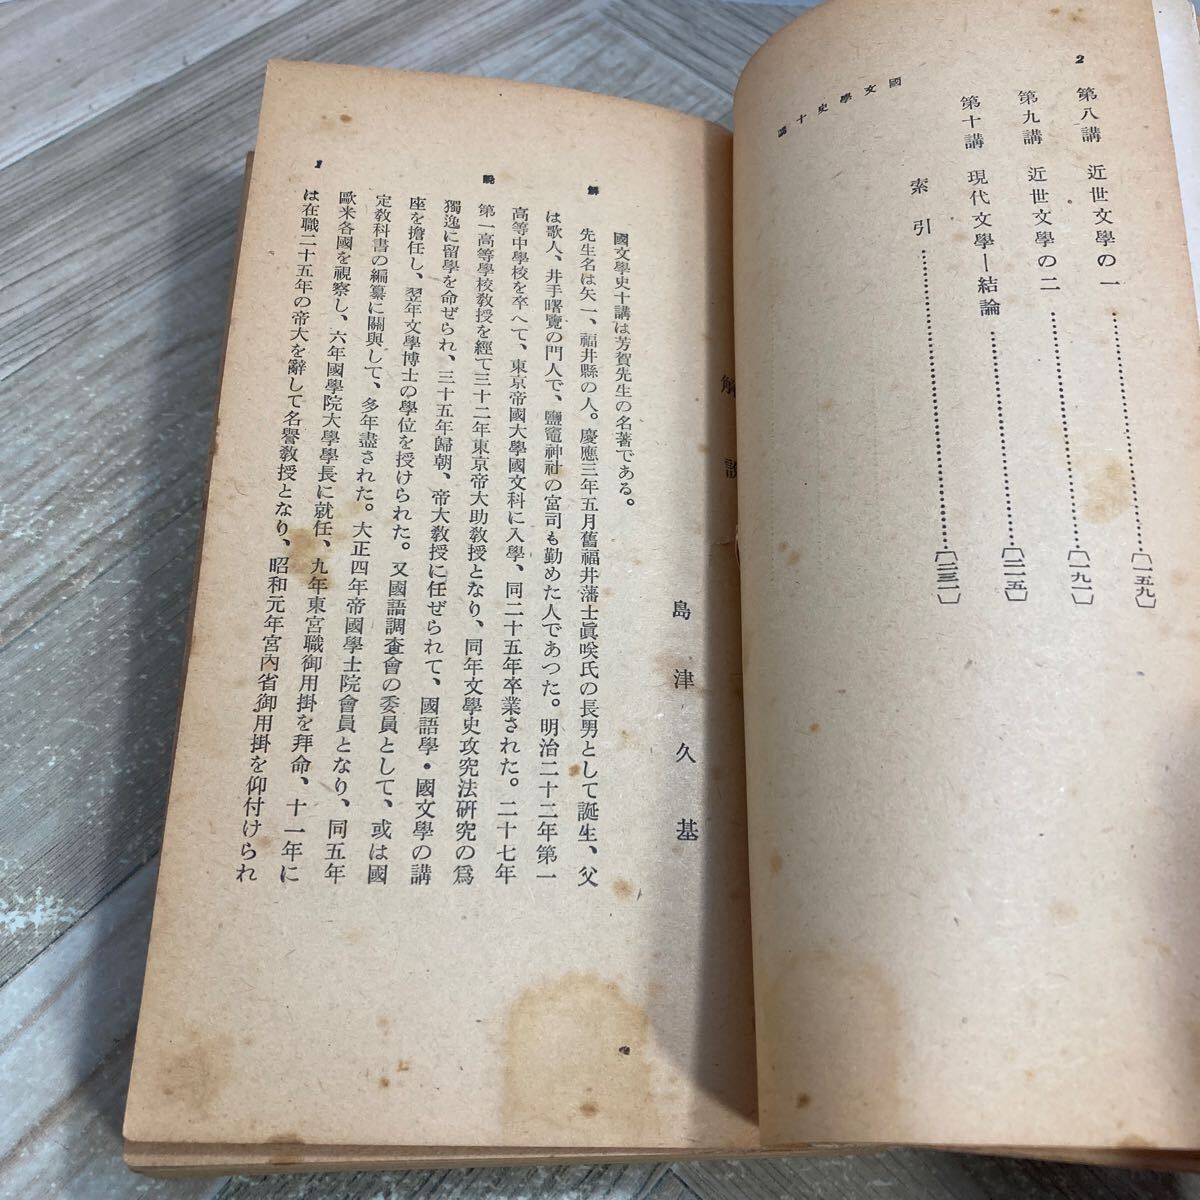 2
國文學史十講
第八講 近世文學の一………………〔一五九〕
第九講 近世文學の二………………〔一九一〕
第十講 現代文學―結論………………〔二一五〕
索引………………〔二三一〕
解說
島津久基
國文學史十講は芳賀先生の名著である。
先生名は矢一、福井縣の人。慶應三年五月舊福井藩士眞咲氏の長男として誕生、父
は歌人、井手曙覽の門人で、鹽竈神社の宮司も勤めた人であつた。明治二十二年第一
高等中學校を卒へて、東京帝國大學國文科に入學、同二十五年卒業された。二十七年
第一高等學校教授を經て三十二年東京帝大助教授となり、同年文學史攻究法硏究の爲
獨逸に留學を命ぜられ、三十五年歸朝、帝大教授に任ぜられて、國語學・國文學の講
座を擔任し、翌年文學博士の學位を授けられた。又國語調査會の委員として、或は國
定教科書の編纂に關與して、多年盡された。大正四年帝國學士院會員となり、同五年
歐米各國を視察し、六年國學院大學學長に就任、九年東宮職御用掛を拜命、十一年に
は在職二十五年の帝大を辭して名譽教授となり、昭和元年宮內省御用掛を仰付けられ
解說
1